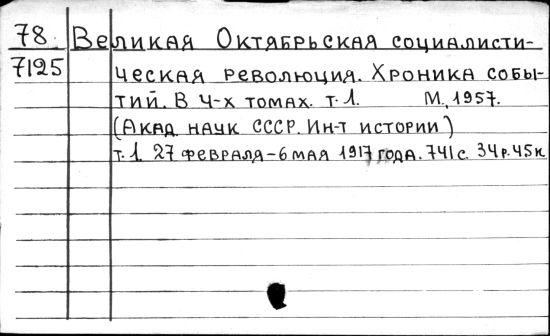 78 Великая Октябрьская социалисти-
7125 ческая революция. Хроника собы-
тий. В 4-х томах. т.1. М., 1957.
(Акад. наук СССР. Ин-т истории)
т.1 27 февраля-6 мая 1917 года. 741с. 34р.45к